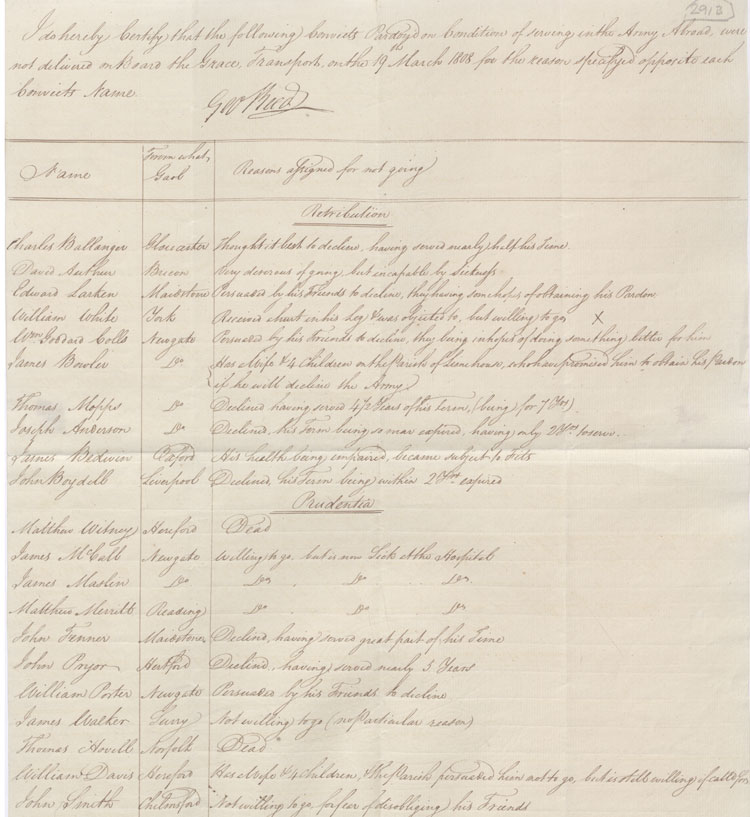 2913
I do hereby Certify that the following Convicts Pardoned on Condition of serving in the Army Abroad, were
not delivered on Board the Grace, Transport, on the 19th March 1808 for the reason specified opposite each
Convicts Name.
Geo Reed
Name From what Gaol Reasons assigned for not going
Retribution
Charles Ballanger Gloucester Thought it best to decline, having served nearly half his Time.
David Arthur Brecon Very desirous of going, but incapable by Sickness
Edward Larken Maidstone Persuaded by his Friends to decline, they having some hopes of obtaining his Pardon
William White York Received a hurt in his Leg & was objected to, but willing to go X
Wm Goddard Colls Newgate Persuaded by his Friends to decline, they being in hopes of doing something better for him
James Bowler Do Has Wife & 4 Children on the Parish of Limehouse, who have promised him to obtain his Pardon
if he will decline the Army
Thomas Mopps Do Declined having served 4 1/2 Years of his Term, (being for 7 Yrs)
Joseph Anderson Do Declined, his Term being so near expired, having only 2 to serve.
James Bedwin Oxford His health being impaired, became subject to Fits
John Boydell Liverpool Declined, his Term being within 2 expired
Prudentia
Matthew Witney Hereford Dead
James McCall Newgate Willing to go, but is now Sick at the Hospital
James Maslen Do Do Do Do
Matthew Merritt Reading Do Do Do
John Fenner Maidstone Declined, having served great part of his Time
John Pryor Hertford Declined, having served nearly 5 Years
William Porter Newgate Persuaded by his Friends to decline
James Walker Surry Not willing to go (no Particular reason)
Thomas Hovell Norfolk Dead
William Davis Hereford Has Wife & 4 Children, & the Parish persuaded him not to go, but is still willing if called for
John Smith Chelmsford Not willing to go, for fear of disobliging his Friends